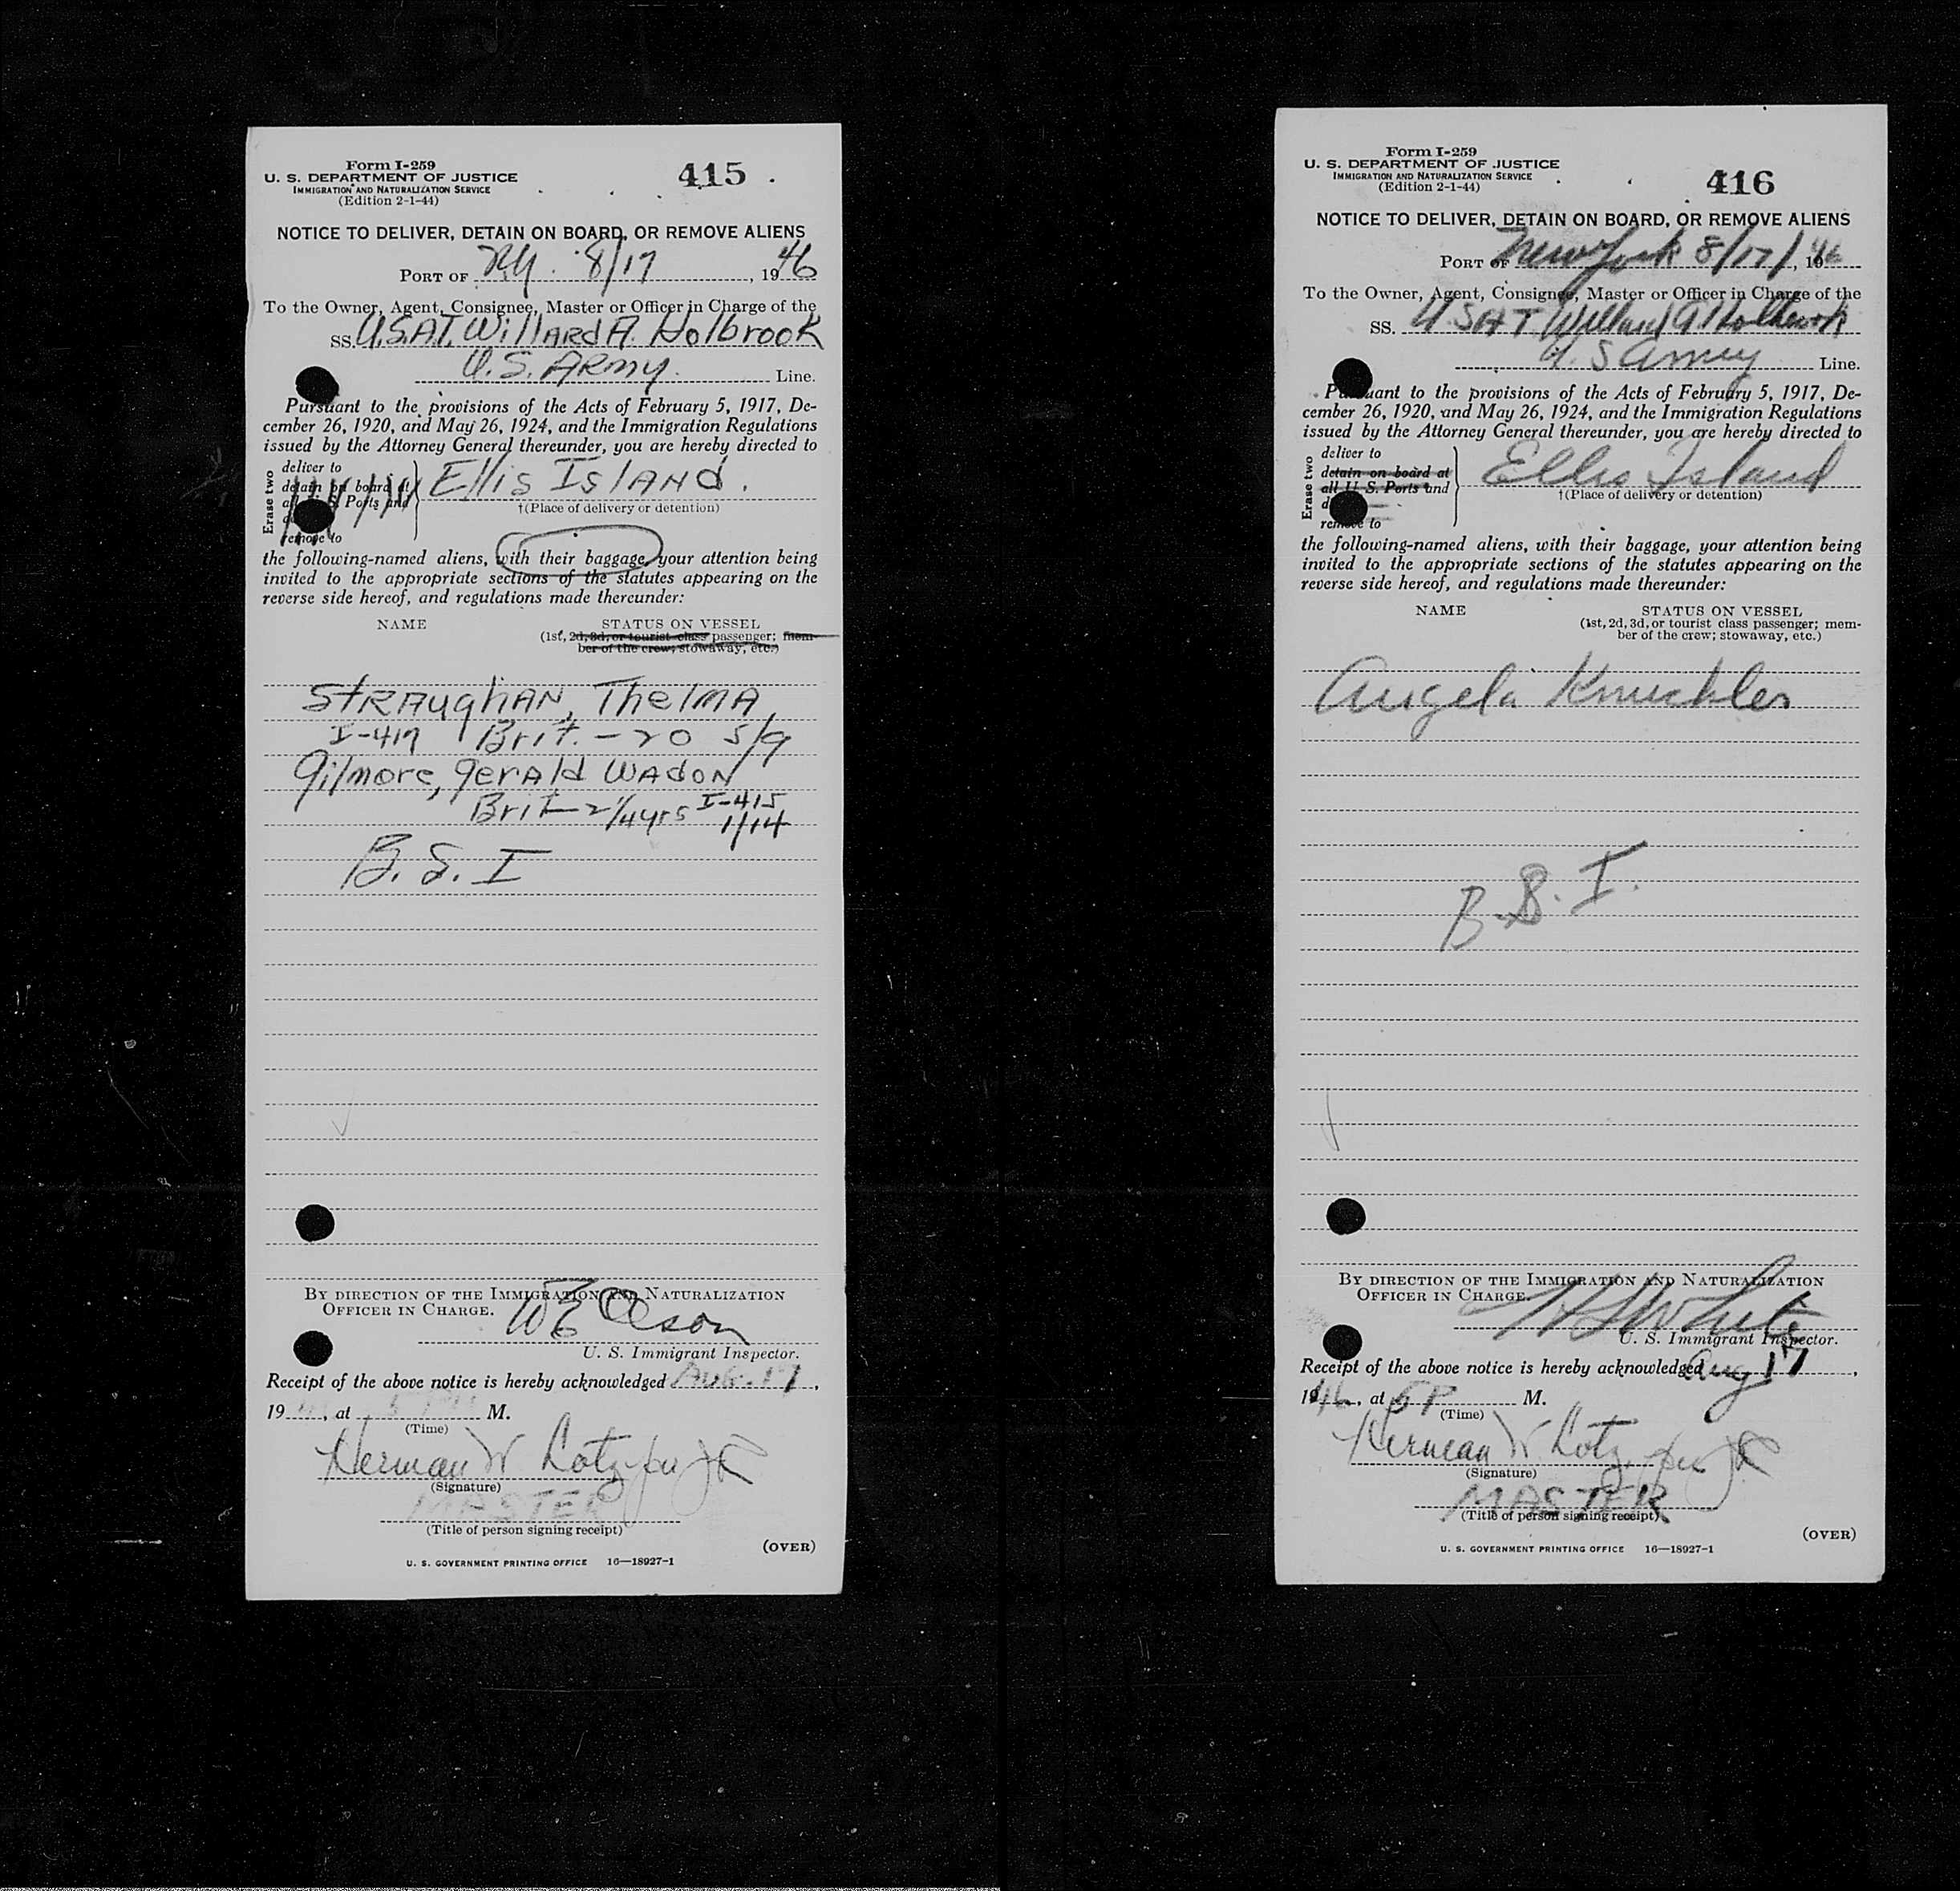 Form I-259
U. S. DEPARTMENT OF JUSTICE
IMMIGRATION AND NATURALIZATION SERVICE
(Edition 2-1-44)
415
NOTICE TO DELIVER, DETAIN ON BOARD, OR REMOVE ALIENS
PORT OF NY. 8/17, 1946
To the Owner, Agent, Consignee, Master or Officer in Charge of the
SS. U.S.A.T. Willard A. Holbrook
U.S. Army. Line.
Pursuant to the provisions of the Acts of February 5, 1917, De-
cember 26, 1920, and May 26, 1924, and the Immigration Regulations
issued by the Attorney General thereunder, you are hereby directed to
Erase two
deliver to
detain on board at
all U. S. Ports and
remove to
Ellis Island.
†(Place of delivery or detention)
the following-named aliens, with their baggage, your attention being
invited to the appropriate sections of the statutes appearing on the
reverse side hereof, and regulations made thereunder:
NAME STATUS ON VESSEL
(1st, 2d, 3d, or tourist class passenger; mem-
ber of the crew; stowaway, etc.)
Straughan, Thelma
I-417 Brit. - 20 5/9
Gilmore, Gerald Wadon
Brit - 2 1/4 yrs I-415
1/14
B. S. I
BY DIRECTION OF THE IMMIGRATION AND NATURALIZATION
OFFICER IN CHARGE.
WE Olson
U. S. Immigrant Inspector.
Receipt of the above notice is hereby acknowledged Aug. 17,
19, at 5 P M.
(Time)
Herman W Lotz per JR
(Signature)
MASTER
(Title of person signing receipt)
(OVER)
U. S. GOVERNMENT PRINTING OFFICE 16—18927-1
Form I-259
U. S. DEPARTMENT OF JUSTICE
IMMIGRATION AND NATURALIZATION SERVICE
(Edition 2-1-44)
416
NOTICE TO DELIVER, DETAIN ON BOARD, OR REMOVE ALIENS
PORT OF New York 8/17/, 1946
To the Owner, Agent, Consignee, Master or Officer in Charge of the
SS. USAT. Willard A Holbrook
U. S Army Line.
Pursuant to the provisions of the Acts of February 5, 1917, De-
cember 26, 1920, and May 26, 1924, and the Immigration Regulations
issued by the Attorney General thereunder, you are hereby directed to
Erase two
deliver to
detain on board at
all U. S. Ports and
remove to
Ellis Island
†(Place of delivery or detention)
the following-named aliens, with their baggage, your attention being
invited to the appropriate sections of the statutes appearing on the
reverse side hereof, and regulations made thereunder:
NAME STATUS ON VESSEL
(1st, 2d, 3d, or tourist class passenger; mem-
ber of the crew; stowaway, etc.)
Angela Knuckles
B. S. I.
BY DIRECTION OF THE IMMIGRATION AND NATURALIZATION
OFFICER IN CHARGE.
White
U. S. Immigrant Inspector.
Receipt of the above notice is hereby acknowledged Aug 17,
1946, at 5P M.
(Time)
Herman W Lotz, per JR
(Signature)
MASTER
(Title of person signing receipt)
(OVER)
U. S. GOVERNMENT PRINTING OFFICE 16—18927-1